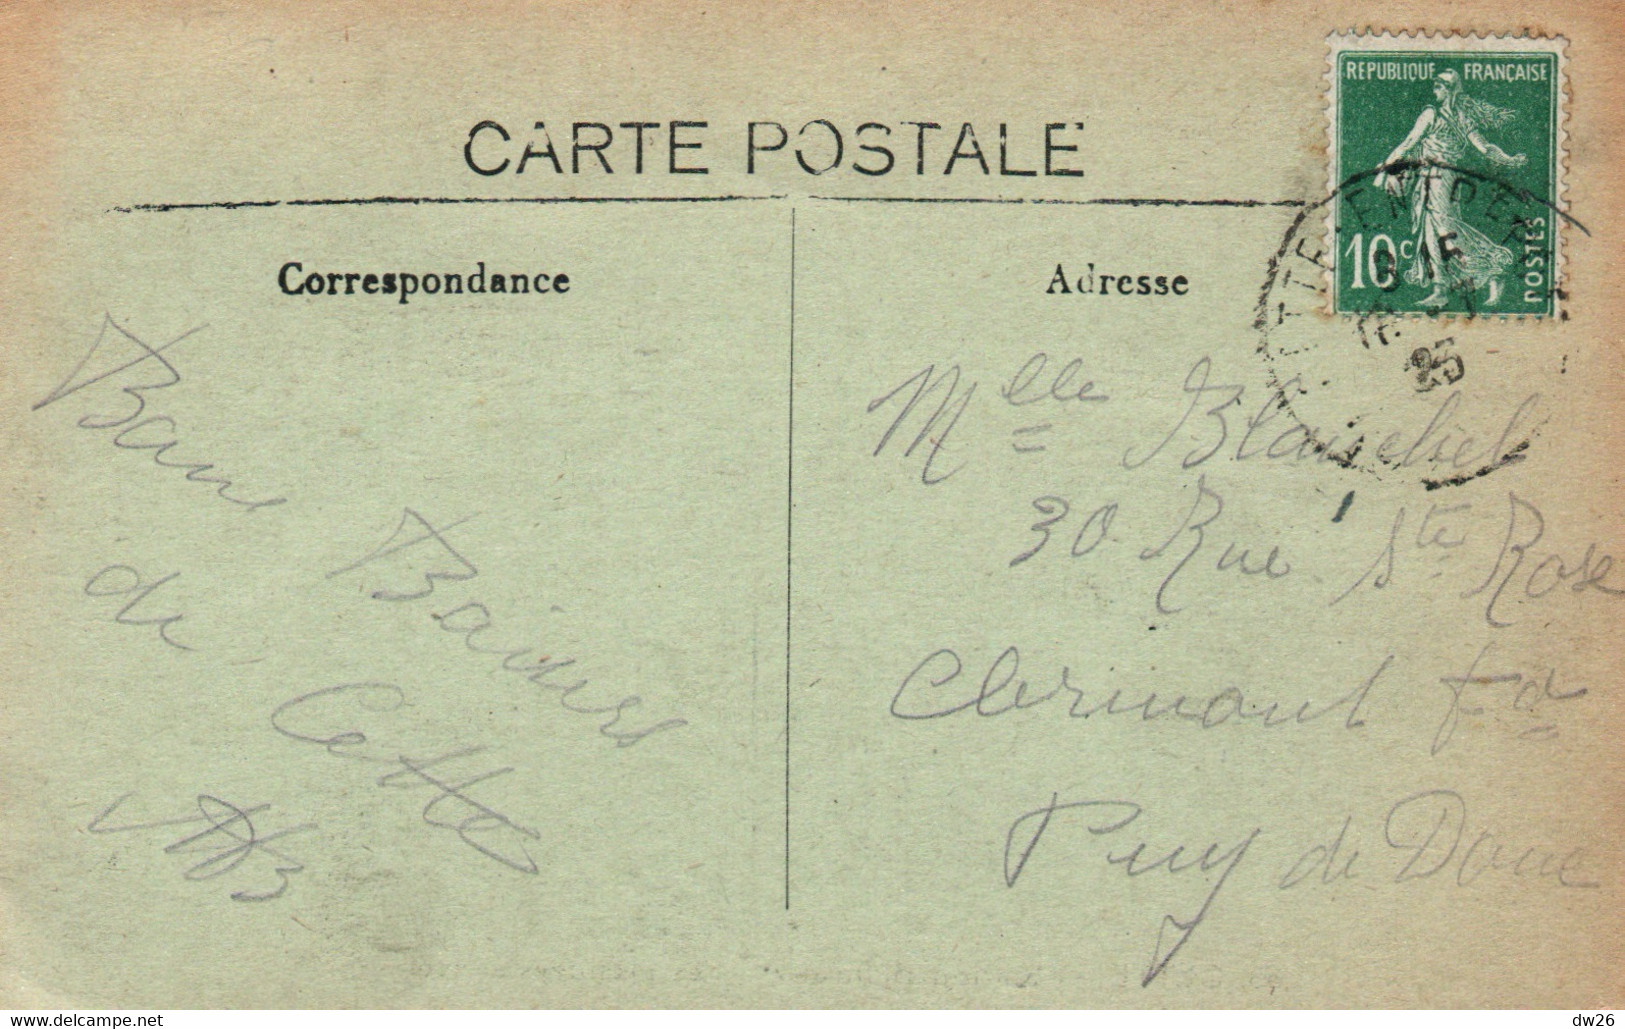 CARTE POSTALE
REPUBLIQUE FRANÇAISE
10c
POSTES
8 15
25
Correspondance
Adresse
Bons Baisers
de Cette
Mlle Blanchet
30 Rue Ste Rose
Clermont Fd
Puy de Dome
delcampe.net
dw26